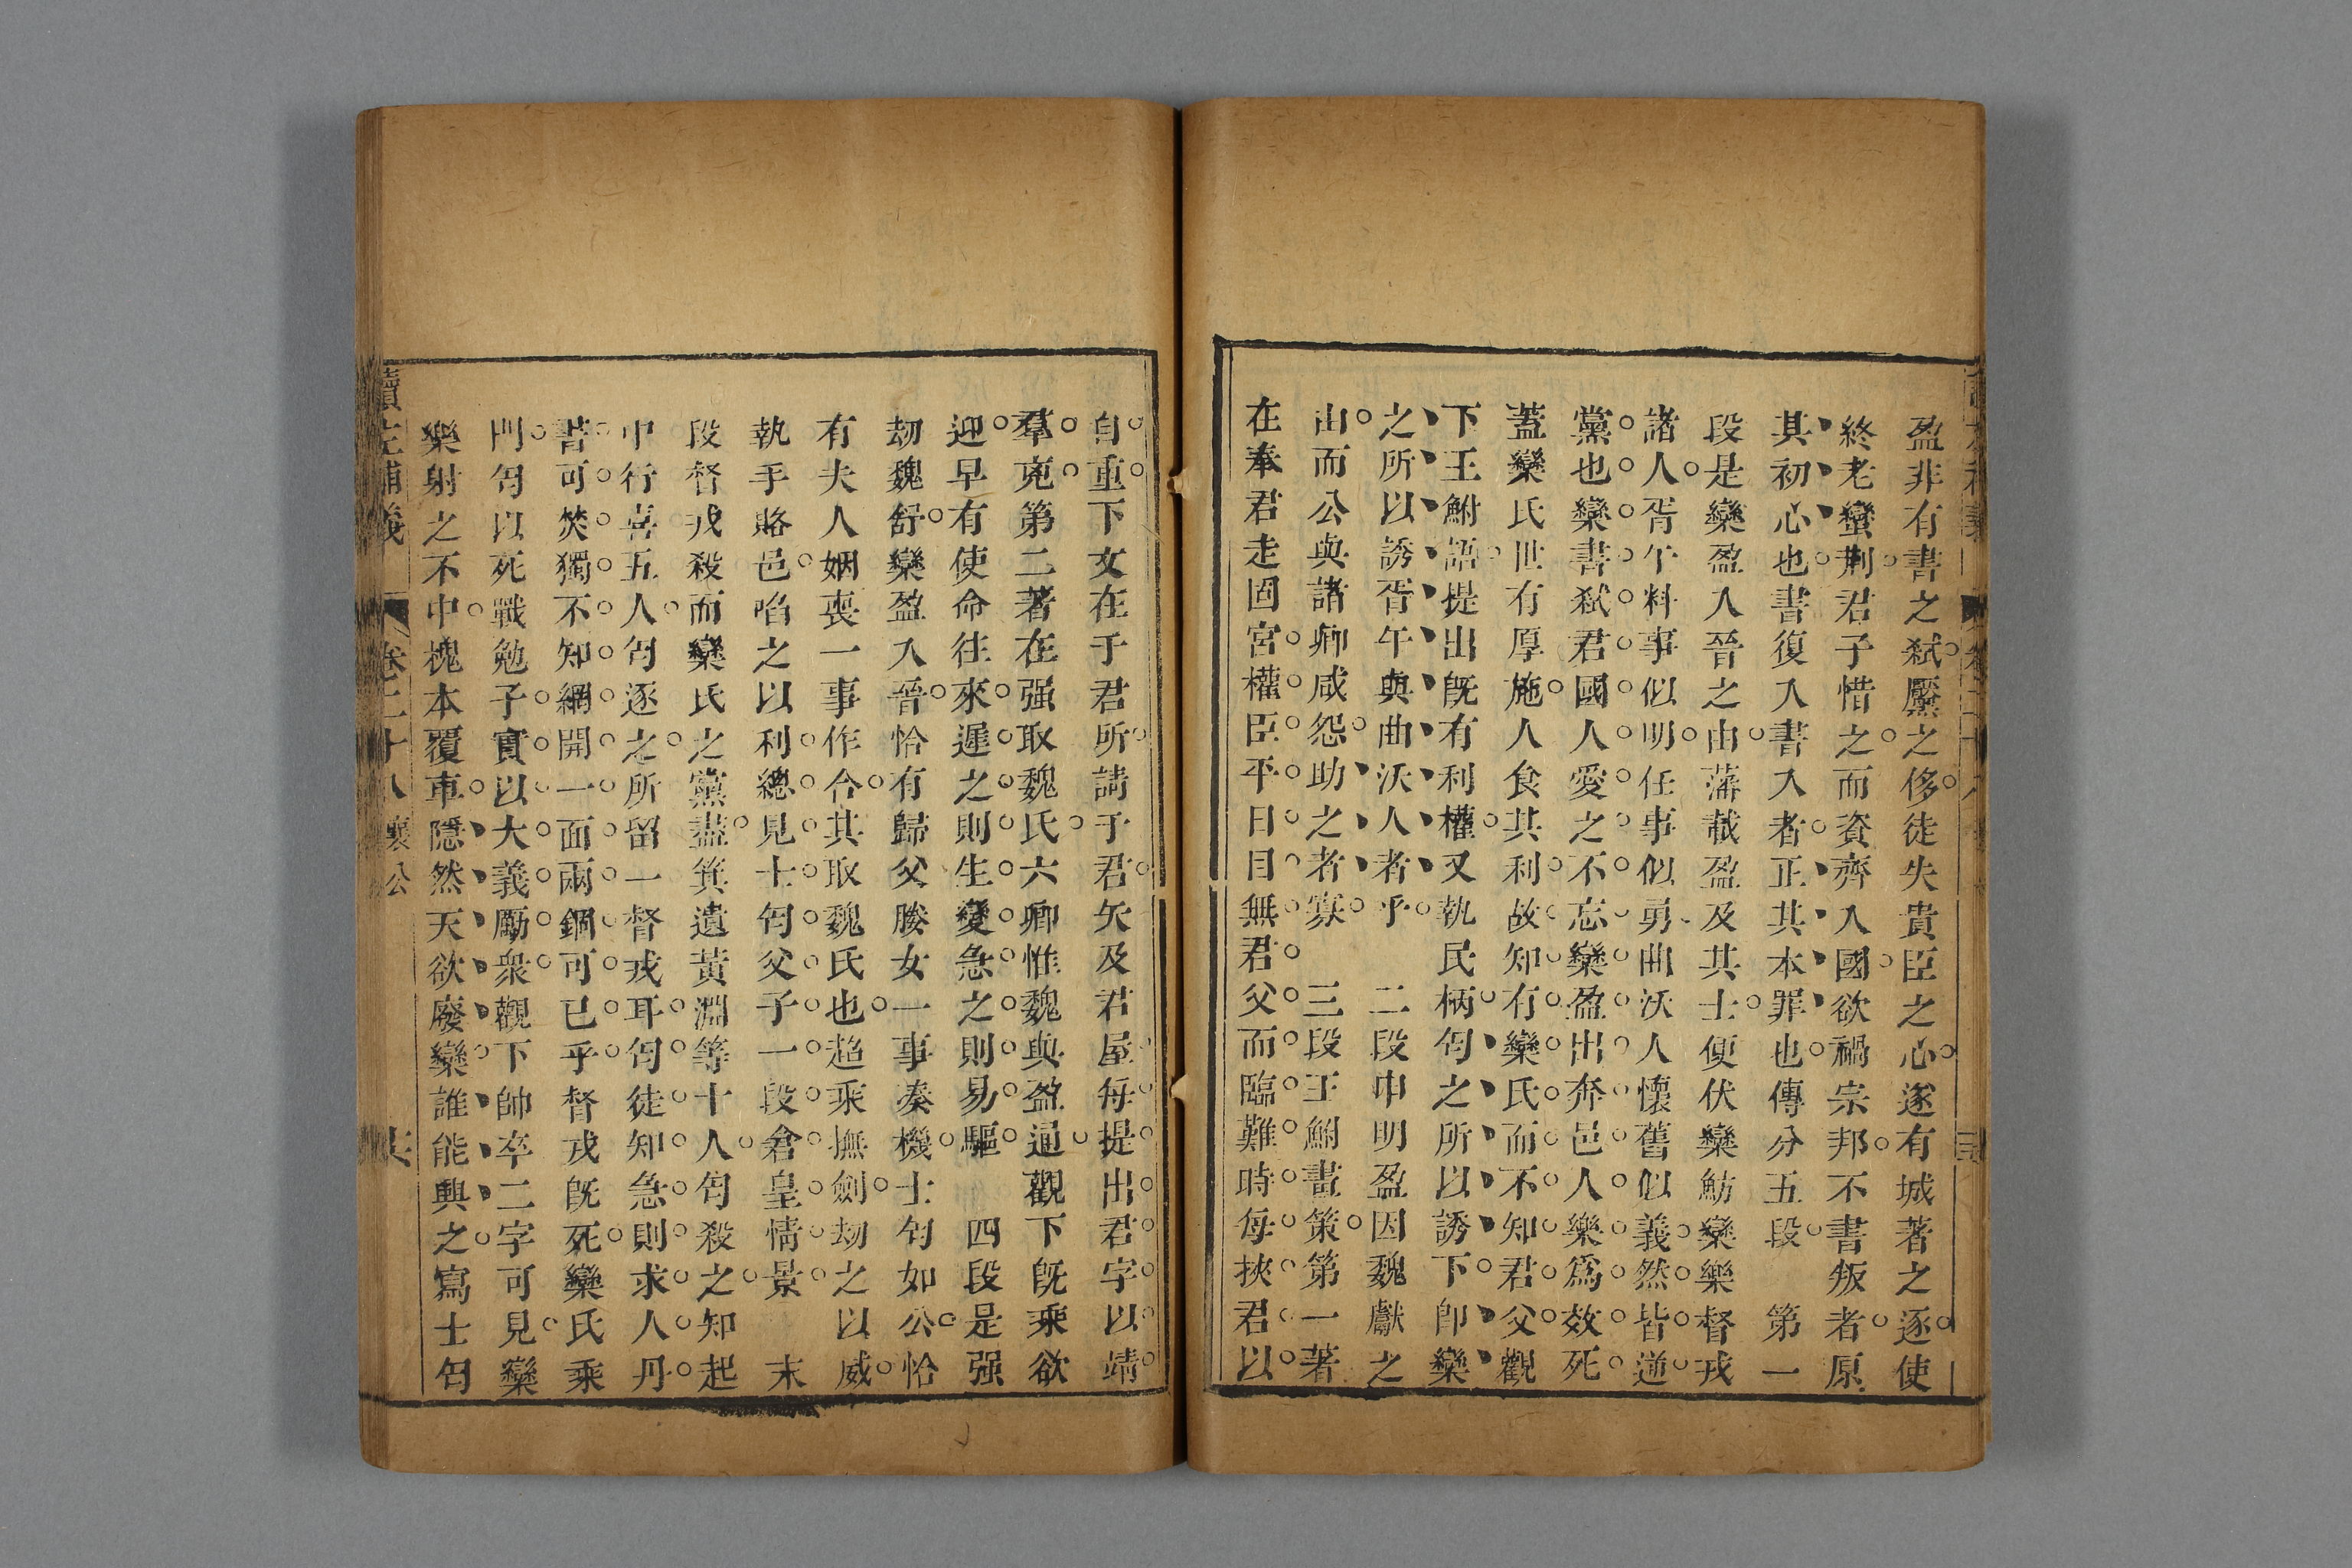 盈非有書之弑黶之侈徒失貴臣之心遂有城著之逐使
終老蠻荆君子惜之而資齊入國欲禍宗邦不書叛者原
其初心也書復入書入者正其本罪也傳分五段 第一
段是欒盈入晉之由藩載盈及其士便伏欒魴欒樂督戎
諸人胥午料事似明任事似勇曲沃人懷舊似義然皆逆
黨也欒書弑君國人愛之不忘欒盈出奔邑人樂爲效死
蓋欒氏世有厚施人食其利故知有欒氏而不知君父觀
下王鮒語提出旣有利權又執民柄匄之所以誘下卽欒
之所以誘胥午與曲沃人者乎 二段申明盈因魏獻之
由而公與諸卿咸怨助之者寡 三段王鮒畫策第一著
在奉君走固宮權臣平日目無君父而臨難時每挾君以
自重下女在于君所請于君矢及君屋每提出君字以靖
羣寇第二著在强取魏氏六卿惟魏與盈通觀下旣乘欲
迎早有使命往來遲之則生變急之則易驅 四段是强
劫魏舒欒盈入晉恰有歸父媵女一事湊機士匄如公恰
有夫人姻喪一事作合其取魏氏也趋乘撫劍劫之以威
執手賂邑啗之以利總見士匄父子一段倉皇情景 末
段督戎殺而欒氏之黨盡箕遺黃淵等十人匄殺之知起
中行喜五人匄逐之所留一督戎耳匄徒知急則求人丹
書可焚獨不知網開一面兩錮可已乎督戎旣死欒氏乘
門匄以死戰勉子實以大義勵衆觀下帥卒二字可見欒
樂射之不中槐本覆車隱然天欲廢欒誰能興之寫士匄
讀左補義 卷二十八 襄公